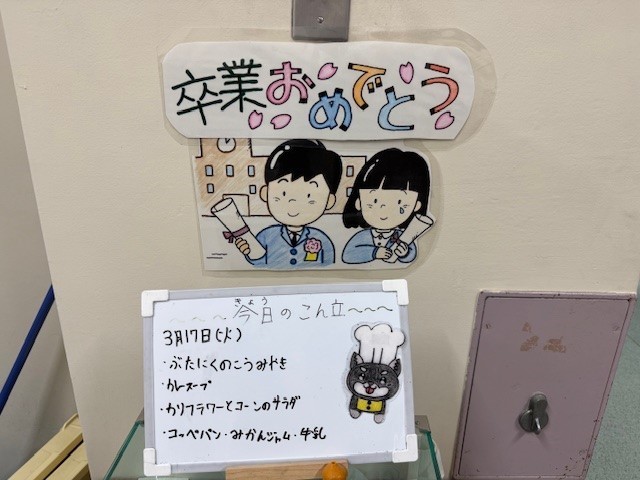 卒業おめでとう
～～～今日のこん立～～～
きょう
3月17日(火)
・ぶたにくのこうみやき
・カレースープ
・カリフラワーとコーンのサラダ
・コッペパン・みかんジャム・牛乳